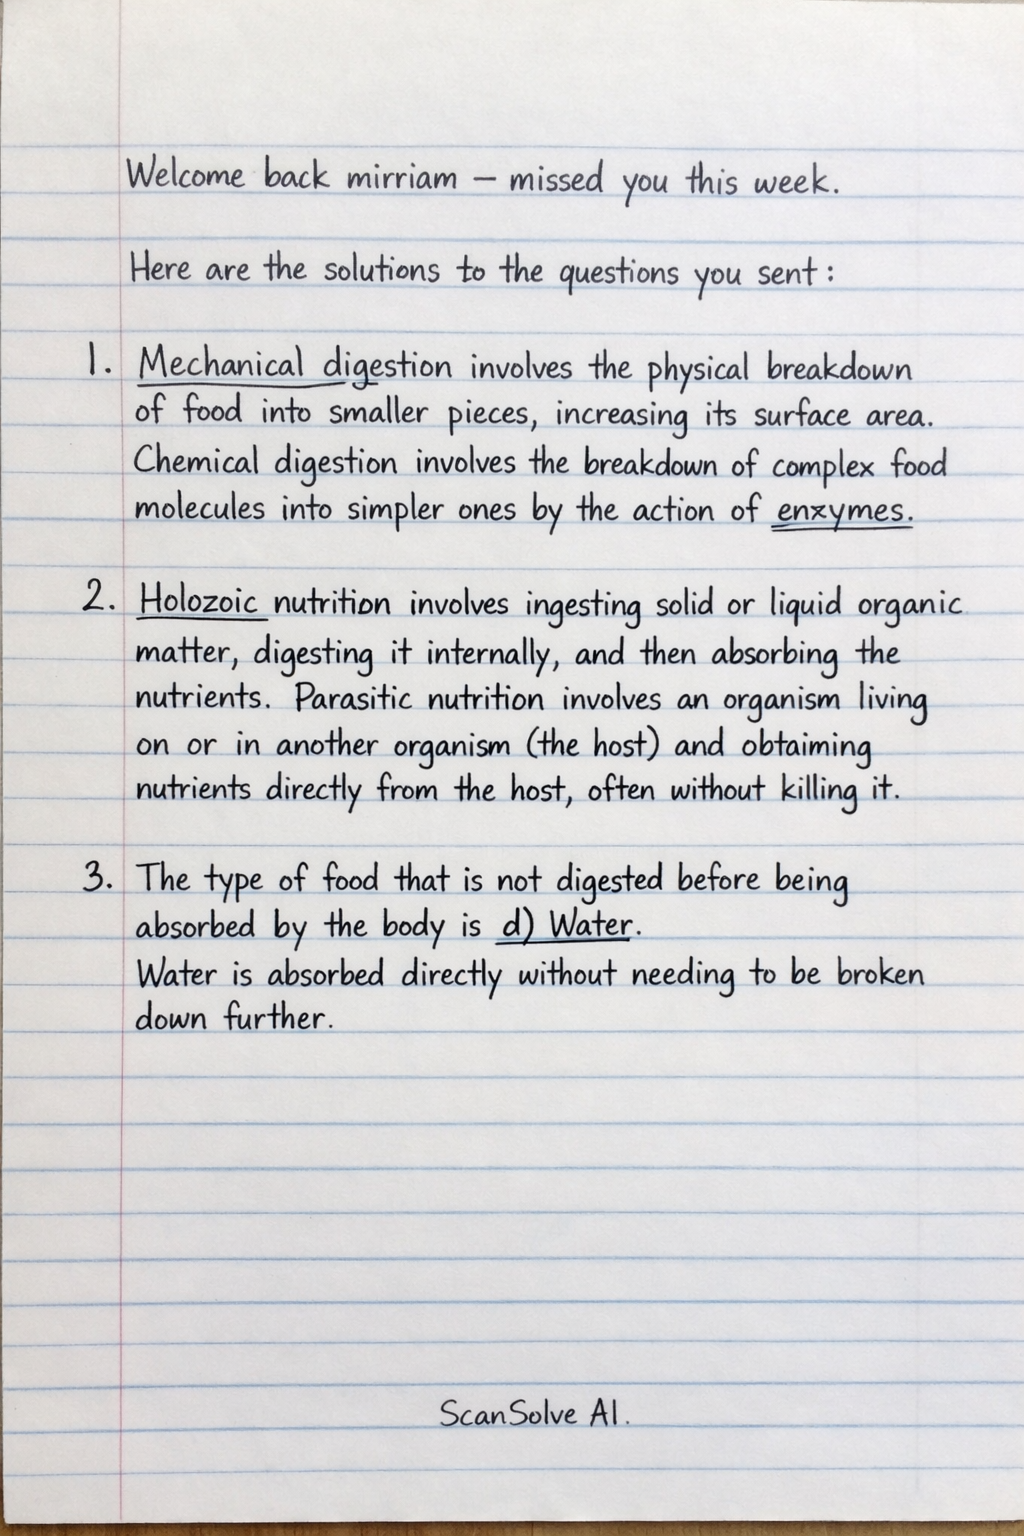 Welcome back mirriam – missed you this week.
Here are the solutions to the questions you sent:
1. Mechanical digestion involves the physical breakdown
of food into smaller pieces, increasing its surface area.
Chemical digestion involves the breakdown of complex food
molecules into simpler ones by the action of enzymes.
2. Holozoic nutrition involves ingesting solid or liquid organic
matter, digesting it internally, and then absorbing the
nutrients. Parasitic nutrition involves an organism living
on or in another organism (the host) and obtaiming
nutrients directly from the host, often without killing it.
3. The type of food that is not digested before being
absorbed by the body is d) Water.
Water is absorbed directly without needing to be broken
down further.
ScanSolve AI.